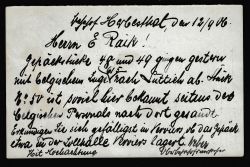 Herbesthal, den 12/9 06.
Herrn E Raik!
Gepäckstücke 48 und 49 gingen gestern
mit belgischem Zuge nach Lüttich ab. Stück
No 50 ist, soviel hier bekannt seitens des
belgischen Personals nach dort gesandt
Erkundigen Sie sich gefälligst in Verviers ob das Gepäck
etwa in der Zollhalle Verviers lagert.
Mit Hochachtung